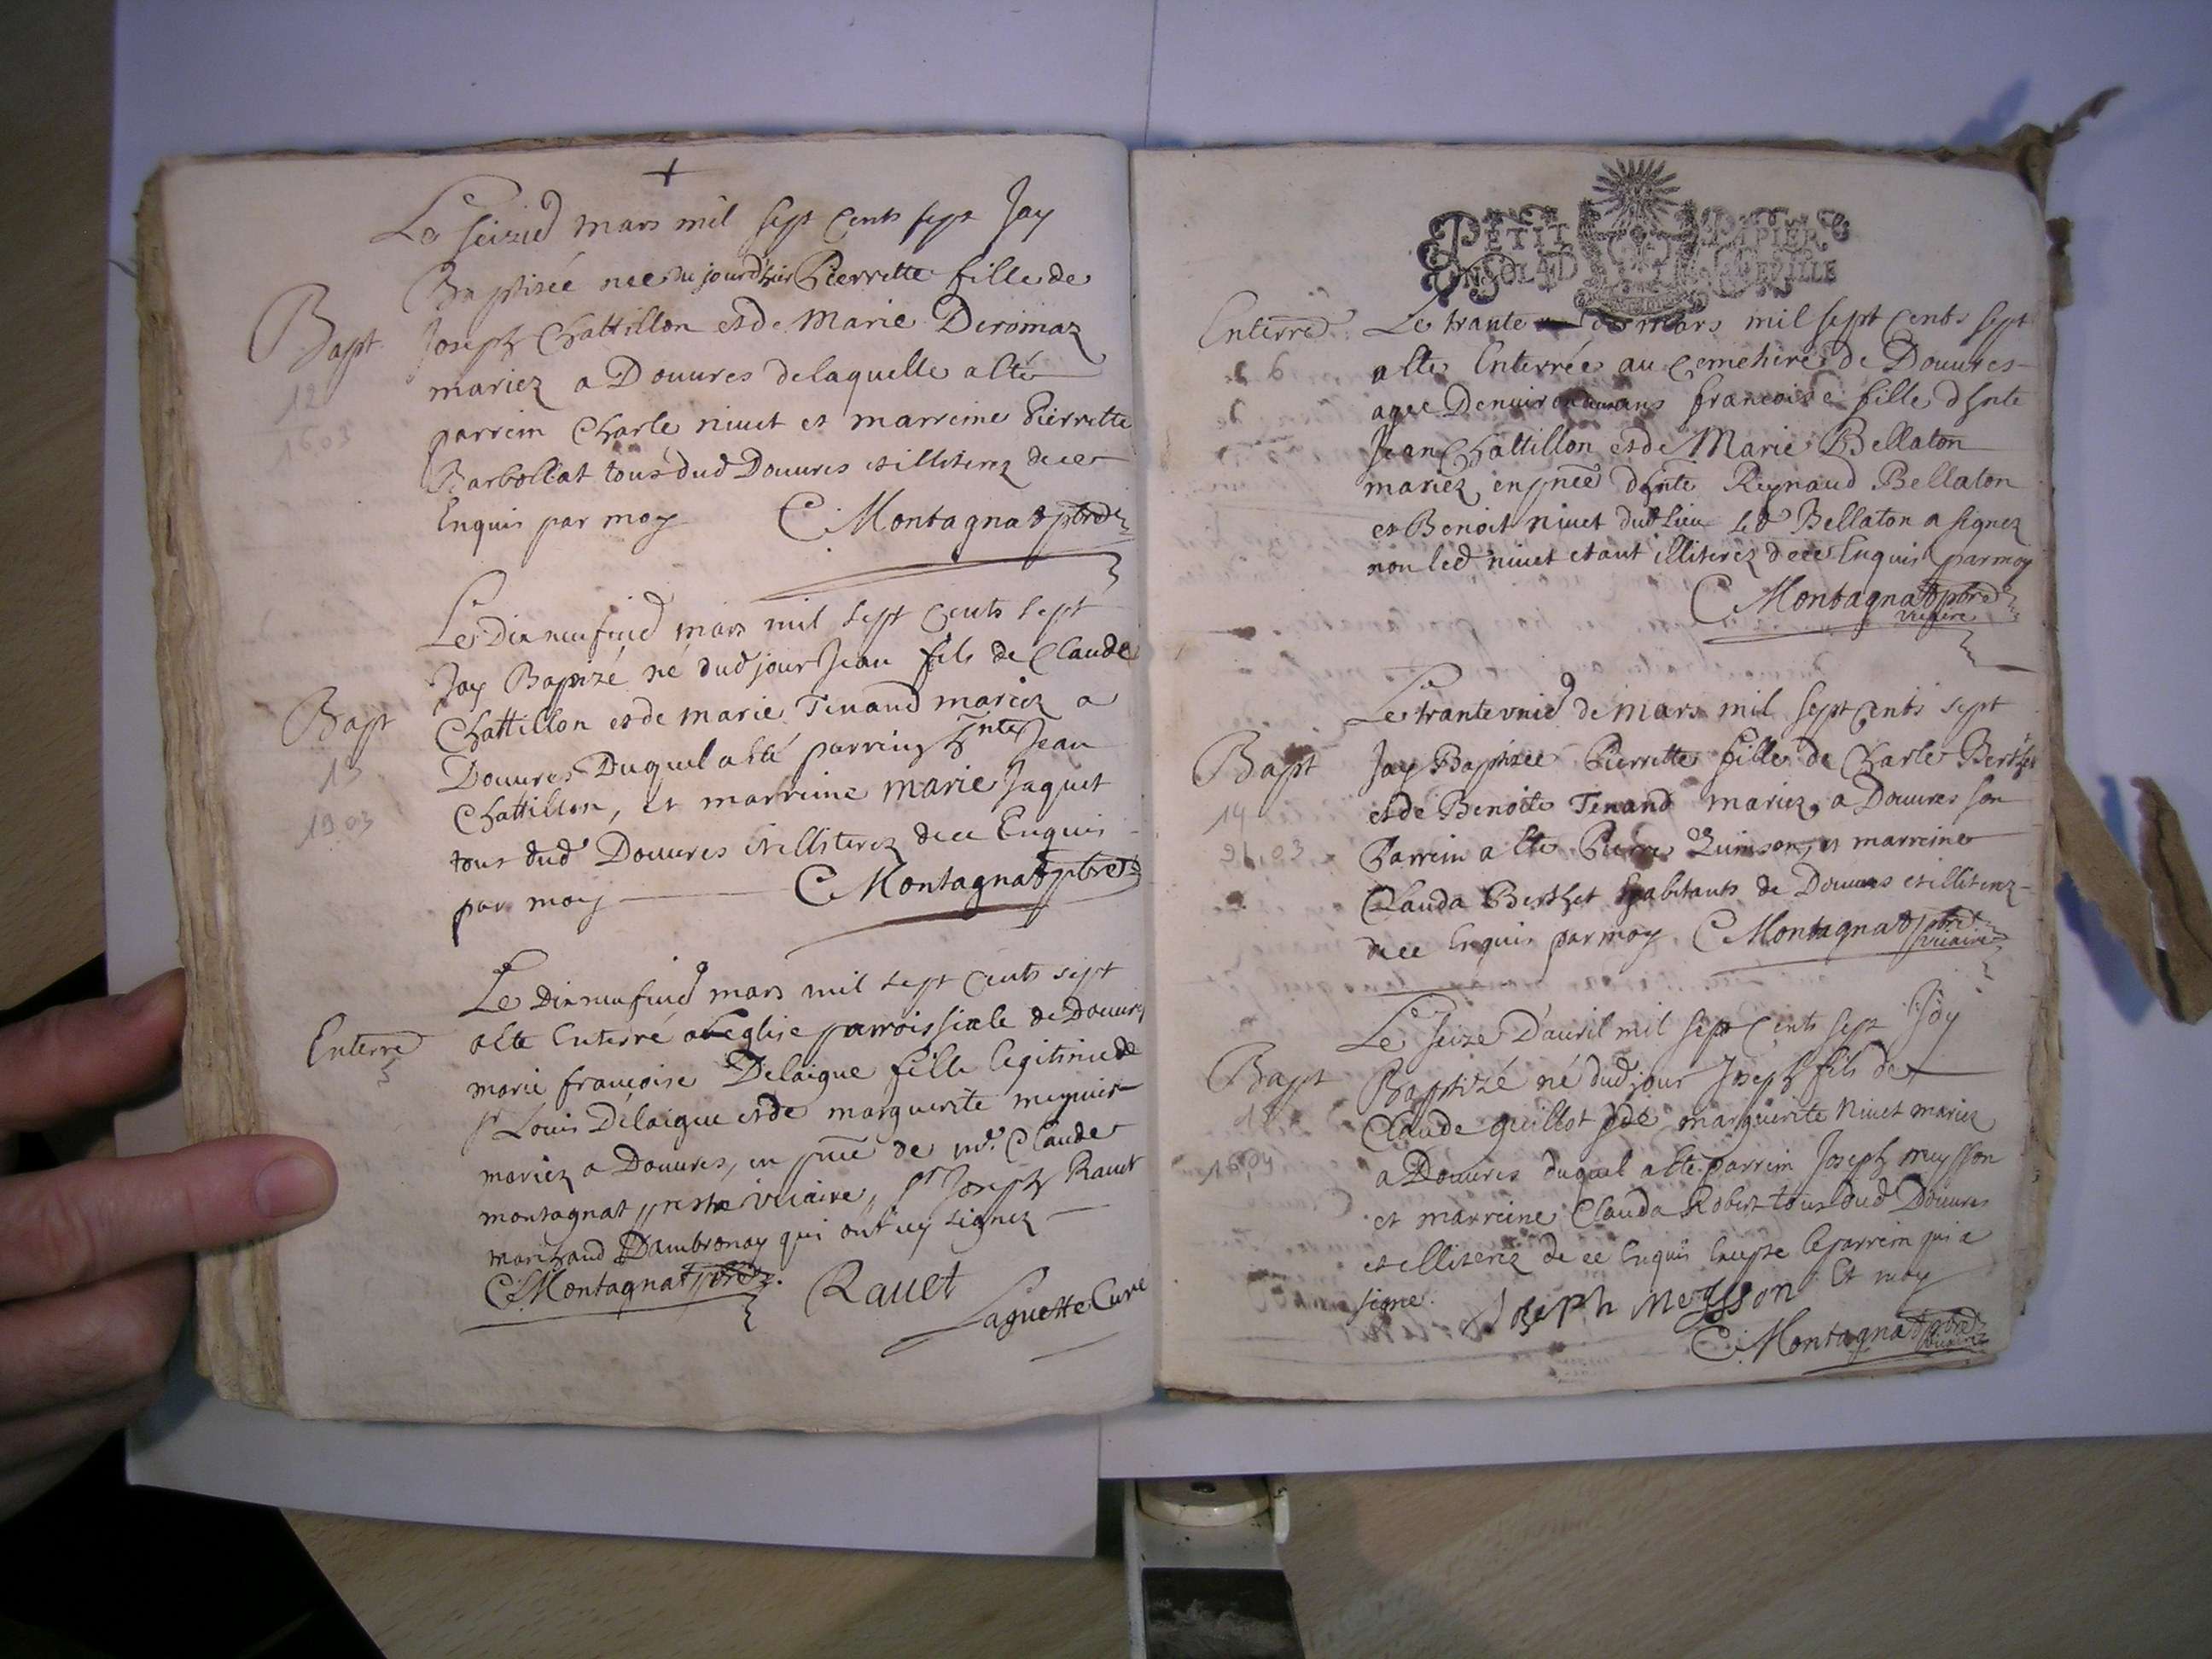 Le seizie mars mil sept cents sept Jay
Baptisée nee du jourdhier Pierrette fille de
Joseph Chattillon et de Marie Deromaz
mariez a Douures de laquelle a esté
parrein Charle niuet et marreine Pierrette
Barbollat tous dud Douures et illiterez de ce
Enquis par moy C. Montagnat pbre
Bapt
12
1603
Le Dixneufuie mars mil sept cents sept
Jay Baptizé né dud jour Jean fils de Claude
Chattillon et de marie Tenand mariez a
Douures Duquel a esté parrein hnte Jean
Chattillon, et marreine marie Jaquet
tous dud Douures et illiterez de ce Enquis
par moy C. Montagnat pbre
Bapt
13
1903
Le Dixneufuie mars mil sept cents sept
a ete Enterré a leglise parroissiale de Douures
marie francoise Delaigue fille legitime de
sr Louis Delaigue et de marguerite
mariez a Douures, en pnce de mre Claude
montagnat prestre vicaire, sr Joseph Rauet
marchand Dambronay qui ont icy signez
C. Montagnat pbre. Rauet
Laguette Curé
Enterré
PETIT PAPIER
UN SOL 4 D LA FEUILLE
Enterré
Le trante de mars mil sept cents sept
a ete Enterrée au Cemetiere de Douures
agee Denuiron ans francoise fille dhnte
Jean Chattillon et de Marie Bellaton
mariez, en pnce dhnte Reynaud Bellaton
et Benoit niuet dud Lieu led Bellaton a signez
non led niuet etant illiterez de ce Enquis par moy
C Montagnat pbre
vicaire
Le trantevnie de mars mil sept cents sept
Jay Baptisee Pierrette fille de Charle Berthet
et de Benoite Tenand mariez a Douures son
Parrein a ete Pierre Quinson, et marreine
Clauda Berthet habitants de Douures et illiterez
de ce Enquis par moy C Montagnat pbre
vicaire
Bapt
14
Le seize Dauril mil sept cents sept Jay
Baptizé né dud jour Joseph fils de
Claude Guillot et de marguerite Niuet mariez
a Douures duquel a ete parrein Joseph meysson
et marreine Clauda Robert tous dud Douures
et illiterez de ce Enquis Excepte le parrein qui a
signe. Joseph Meysson Et moy
C. Montagnat pbre
vicaire
Bapt